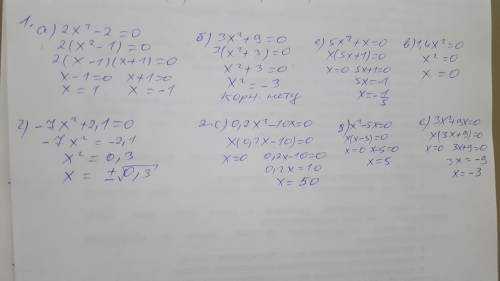 1.
а) 2x²-2=0
2(x²-1)=0
2(x-1)(x+1)=0
x-1=0 x+1=0
x=1 x=-1
б) 3x²+9=0
3(x²+3)=0
x²+3=0
x²=-3
корн. нету
с) 5x²+x=0
x(5x+1)=0
x=0 5x+1=0
5x=-1
x=-1/5
в) 1,4x²=0
x²=0
x=0
г) -7x²+2,1=0
-7x²=-2,1
x²=0,3
x=±√0,3
2-с) 0,2x²-10x=0
x(0,2x-10)=0
x=0 0,2x-10=0
0,2x=10
x=50
g) x²-5x=0
x(x-5)=0
x=0 x-5=0
x=5
е) 3x²+9x=0
x(3x+9)=0
x=0 3x+9=0
3x=-9
x=-3